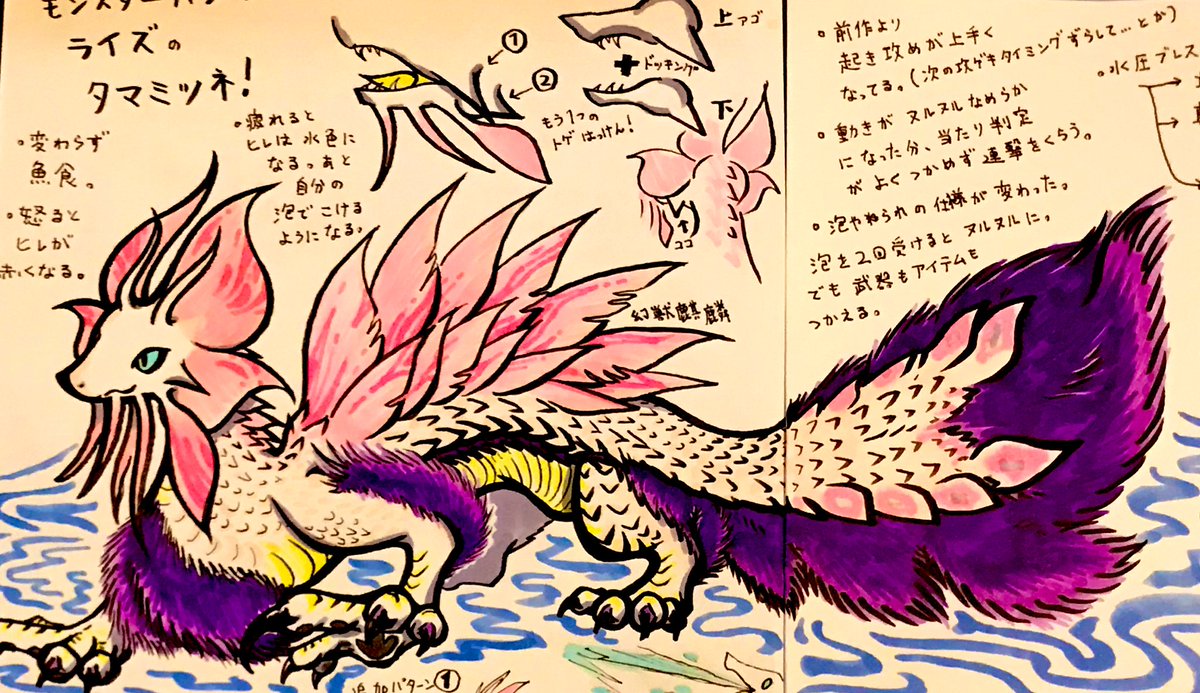 モンスターハン
ライズの
タマミツネ!
。変わらず
魚食。
。怒ると
ヒレが
赤くなる。
。疲れると
ヒレは水色に
なるっあと
自分の
泡でこける
ようになる。
①
②
もう1つの
トゲはっけん!
上アゴ
+ドッキング
下
ココ
幻獣麒麟
。前作より
起き攻めが上手く
なってる。(次の攻ゲキタイミングずらして…とか)
。動きがヌルヌルなめらか
になった分、当たり判定
がよくつかめず連撃をくらう。
。泡やられの仕様が変わった。
泡を2回受けるとヌルヌルに。
でも武器もアイテムも
つかえる。
。水圧ブレス
追加パターン①